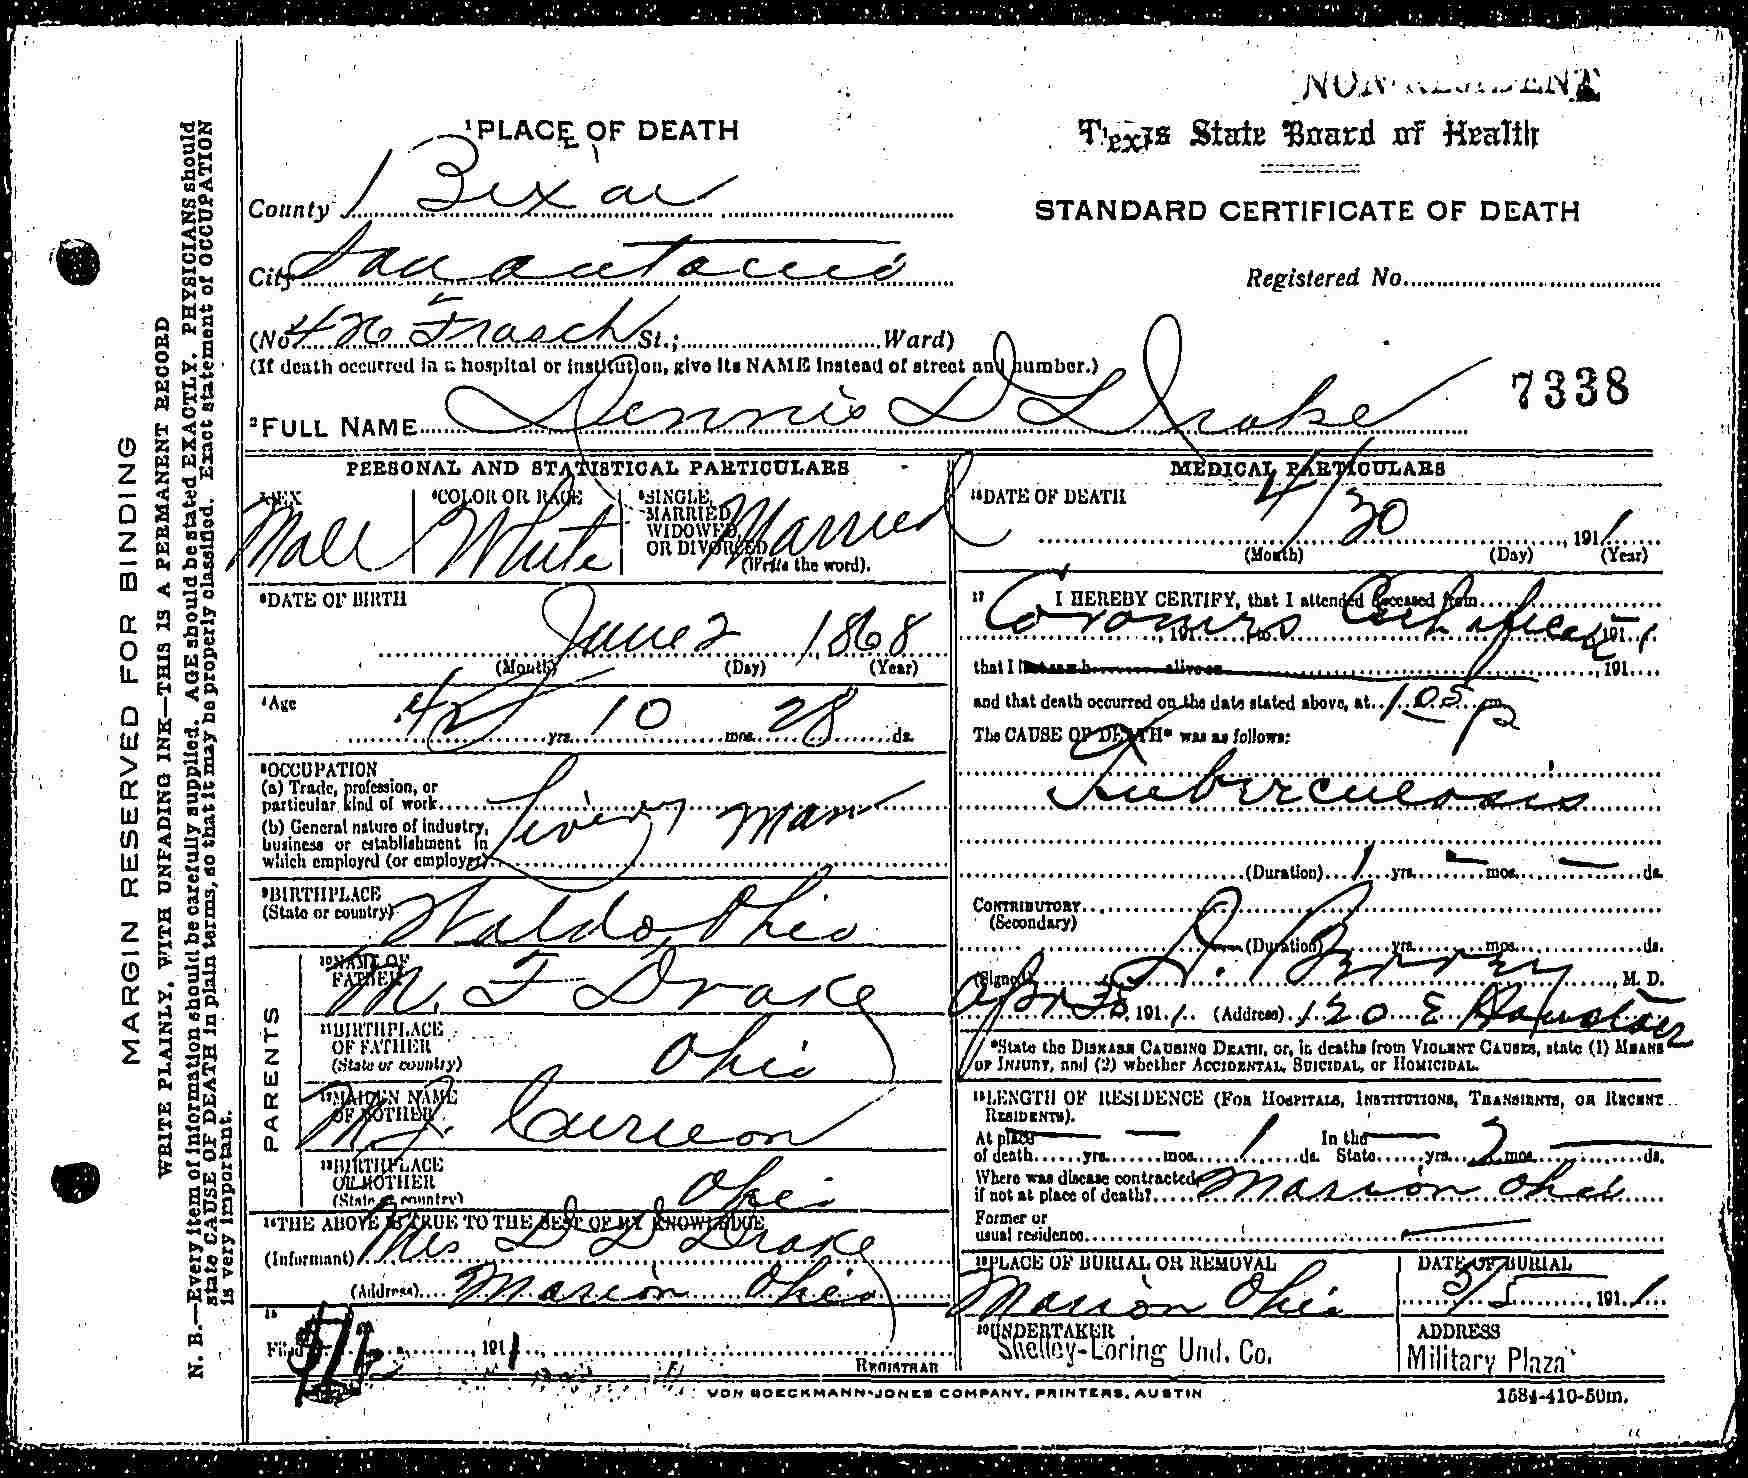 NON-RESIDENT
¹PLACE OF DEATH
Texas State Board of Health
County Bexar
STANDARD CERTIFICATE OF DEATH
City San Antonio
Registered No.
(No. Frasch St.; Ward)
(If death occurred in a hospital or institution, give its NAME instead of street and number.)
7338
²FULL NAME Dennis D Drake
PERSONAL AND STATISTICAL PARTICULARS
³SEX Male
⁴COLOR OR RACE White
⁵SINGLE, MARRIED, WIDOWED, OR DIVORCED Married
(Write the word).
⁶DATE OF BIRTH
June 2 1868
(Month) (Day) (Year)
⁷Age 42 yrs. 10 mos. 28 ds.
⁸OCCUPATION
(a) Trade, profession, or
particular kind of work Livery Man
(b) General nature of industry,
business or establishment in
which employed (or employer)
⁹BIRTHPLACE
(State or country) Waldo, Ohio
PARENTS
¹⁰NAME OF
FATHER M. F Drake
¹¹BIRTHPLACE
OF FATHER
(State or country) Ohio
¹²MAIDEN NAME
OF MOTHER M. J.
¹³BIRTHPLACE
OF MOTHER
(State or country) Ohio
¹⁴THE ABOVE IS TRUE TO THE BEST OF MY KNOWLEDGE
(Informant) Mrs D D Drake
(Address) Marion Ohio
¹⁵
Filed 1911
REGISTRAR
MEDICAL PARTICULARS
¹⁶DATE OF DEATH 4/30 1911
(Month) (Day) (Year)
¹⁷ I HEREBY CERTIFY, that I attended deceased from
Coroners Certificate
191 , to 1911
that I last saw h alive on 191
and that death occurred on the date stated above, at 1 05 p m.
The CAUSE OF DEATH* was as follows:
Tuberculosis
(Duration) 1 yrs. – mos. – ds.
CONTRIBUTORY
(Secondary)
(Duration) yrs. mos. ds.
(Signed) M. D.
1911 (Address) 120 E Houston
*State the DISEASE CAUSING DEATH, or, in deaths from VIOLENT CAUSES, state (1) MEANS
OF INJURY, and (2) whether ACCIDENTAL, SUICIDAL, or HOMICIDAL.
¹⁸LENGTH OF RESIDENCE (FOR HOSPITALS, INSTITUTIONS, TRANSIENTS, OR RECENT
RESIDENTS).
At place In the
of death yrs. – mos. 1 ds. State – yrs. 2 mos. – ds.
Where was disease contracted,
if not at place of death? Marion Ohio
Former or
usual residence
¹⁹PLACE OF BURIAL OR REMOVAL
Marion Ohio
DATE OF BURIAL
5/5 1911
²⁰UNDERTAKER
Shelley-Loring Und. Co.
ADDRESS
Military Plaza
VON BOECKMANN-JONES COMPANY, PRINTERS, AUSTIN
1584-410-50m.
MARGIN RESERVED FOR BINDING
WRITE PLAINLY, WITH UNFADING INK—THIS IS A PERMANENT RECORD
N. B.—Every item of information should be carefully supplied. AGE should be stated EXACTLY. PHYSICIANS should
state CAUSE OF DEATH in plain terms, so that it may be properly classified. Exact statement of OCCUPATION
is very important.